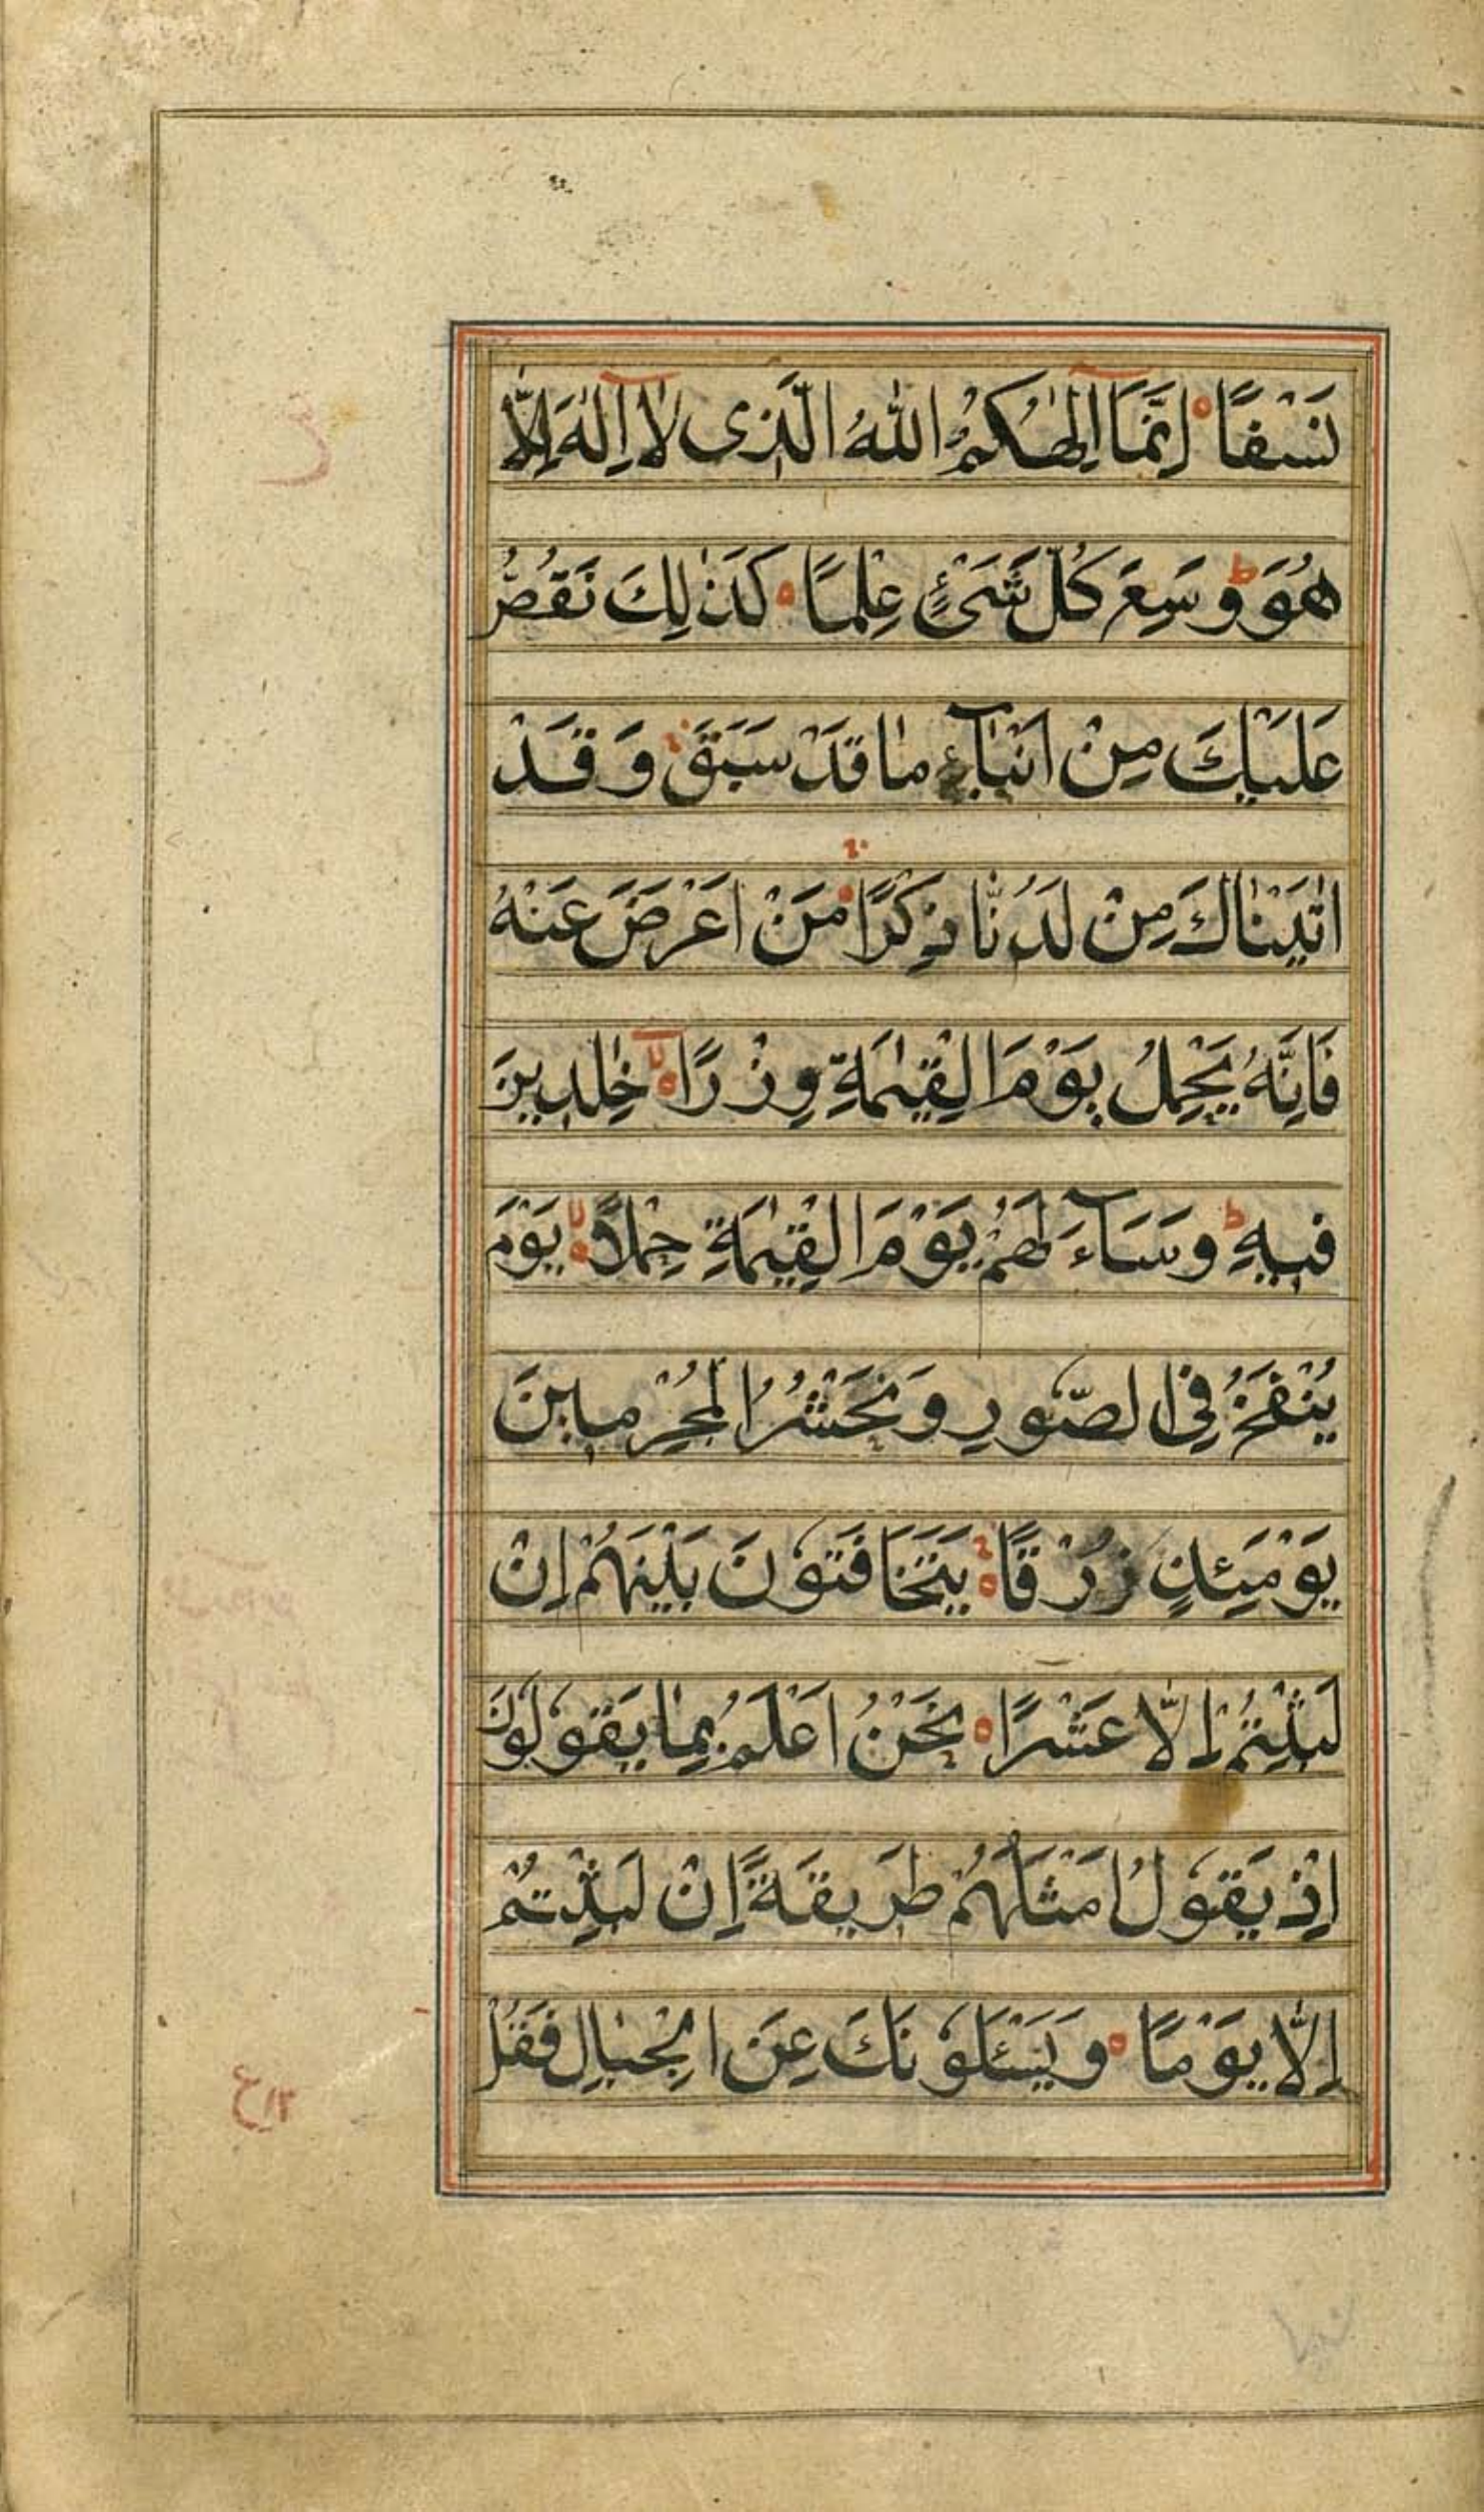 نَسْفًا اِنَّمَآ اِلٰهُكُمُ اللّٰهُ الَّذِى لَآ اِلٰهَ اِلَّا
هُوَ ط وَسِعَ كُلَّ شَىْءٍ عِلْمًا كَذٰلِكَ نَقُصُّ
عَلَيْكَ مِنْ اَنْۢبَآءِ مَا قَدْ سَبَقَ ج وَقَدْ
اٰتَيْنَاكَ مِنْ لَدُنَّا ذِكْرًا ج مَنْ اَعْرَضَ عَنْهُ
فَاِنَّهُ يَحْمِلُ يَوْمَ الْقِيٰمَةِ وِزْرًا لا خٰلِدِينَ
فِيهِ ط وَسَآءَ لَهُمْ يَوْمَ الْقِيٰمَةِ حِمْلًا لا يَوْمَ
يُنْفَخُ فِى الصُّورِ وَنَحْشُرُ الْمُجْرِمِينَ
يَوْمَئِذٍ زُرْقًا ج يَتَخَافَتُونَ بَيْنَهُمْ اِنْ
لَبِثْتُمْ اِلَّا عَشْرًا نَحْنُ اَعْلَمُ بِمَا يَقُولُونَ
اِذْ يَقُولُ اَمْثَلُهُمْ طَرِيقَةً اِنْ لَبِثْتُمْ
اِلَّا يَوْمًا وَيَسْئَلُونَكَ عَنِ الْجِبَالِ فَقُلْ
ع